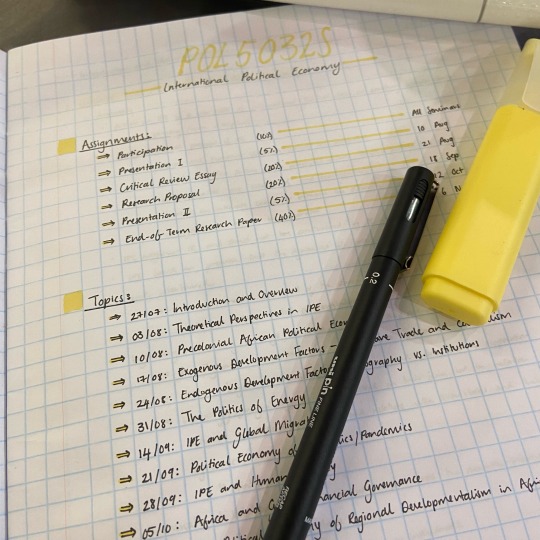 POL5032S
International Political Economy
Assignments:
⇒ Participation (10%) All Semester
⇒ Presentation I (5%) 10 Aug
⇒ Critical Review Essay (20%) 21 Aug
⇒ Research Proposal (20%) 18 Sep
⇒ Presentation II (5%) 12 Oct
⇒ End-of Term Research Paper (40%) 6 N
Topics:
⇒ 27/07: Introduction and Overview
⇒ 03/08: Theoretical Perspectives in IPE
⇒ 10/08: Precolonial African Political
⇒ 17/08: Exogenous Development Factors - Trade and
⇒ 24/08: Endogenous Development vs. Institutions
⇒ 31/08: The Politics of Energy
⇒ 14/09: IPE and Global
⇒ 21/09: Political Economy /Pandemics
⇒ 28/09: IPE and
⇒ 05/10: Africa and Governance
of Regional Developmentalism in
0.2
uni PIN FINE LINE